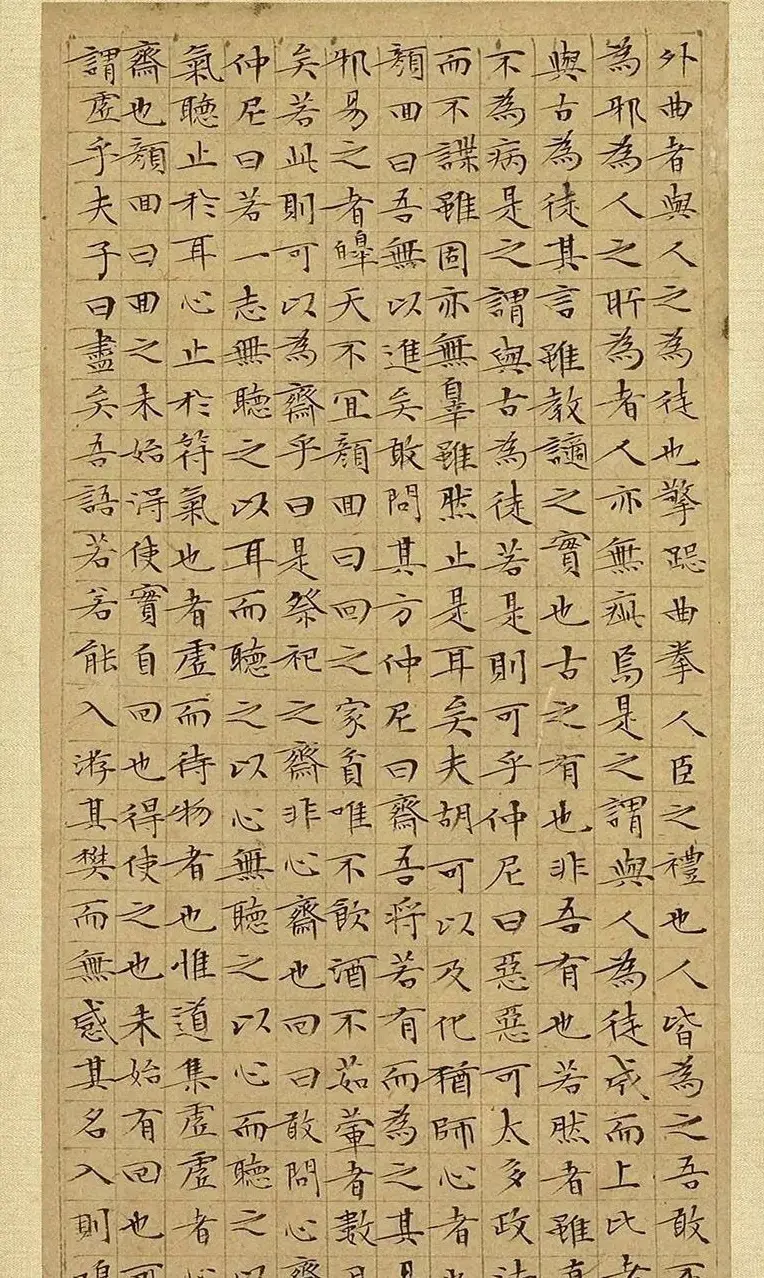 外曲者與人之為徒也擎跽曲拳人臣之禮也人皆為之吾敢不
為邪為人之所為者人亦無疵焉是之謂與人為徒成而上比者
與古為徒其言雖教讁之實也古之有也非吾有也若然者雖直
不為病是之謂與古為徒若是則可乎仲尼曰惡惡可太多政法
而不諜雖固亦無辠雖然止是耳矣夫胡可以及化猶師心者也
顏回曰吾無以進矣敢問其方仲尼曰齋吾將若有而為之其易
邪易之者皞天不宜顏回曰回之家貧唯不飲酒不茹葷者數月
矣若此則可以為齋乎曰是祭祀之齋非心齋也回曰敢問心齋
仲尼曰若一志無聽之以耳而聽之以心無聽之以心而聽之以
氣聽止於耳心止於符氣也者虛而待物者也惟道集虛虛者心
齋也顏回曰回之未始得使實自回也得使之也未始有回也可
謂虛乎夫子曰盡矣吾語若若能入游其樊而無感其名入則鳴